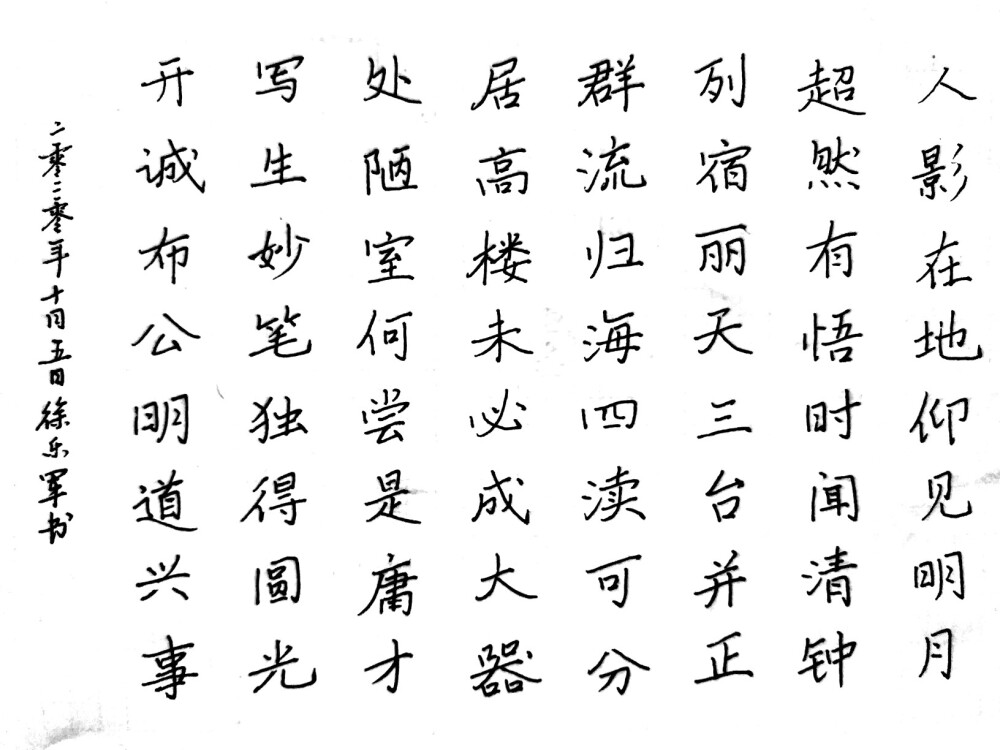 人影在地仰见明月
超然有悟时闻清钟
列宿丽天三台并正
群流归海四渎可分
居高楼未必成大器
处陋室何尝是庸才
写生妙笔独得圖光
开诚布公明道兴事
二零二零年十月五日徐乐军书